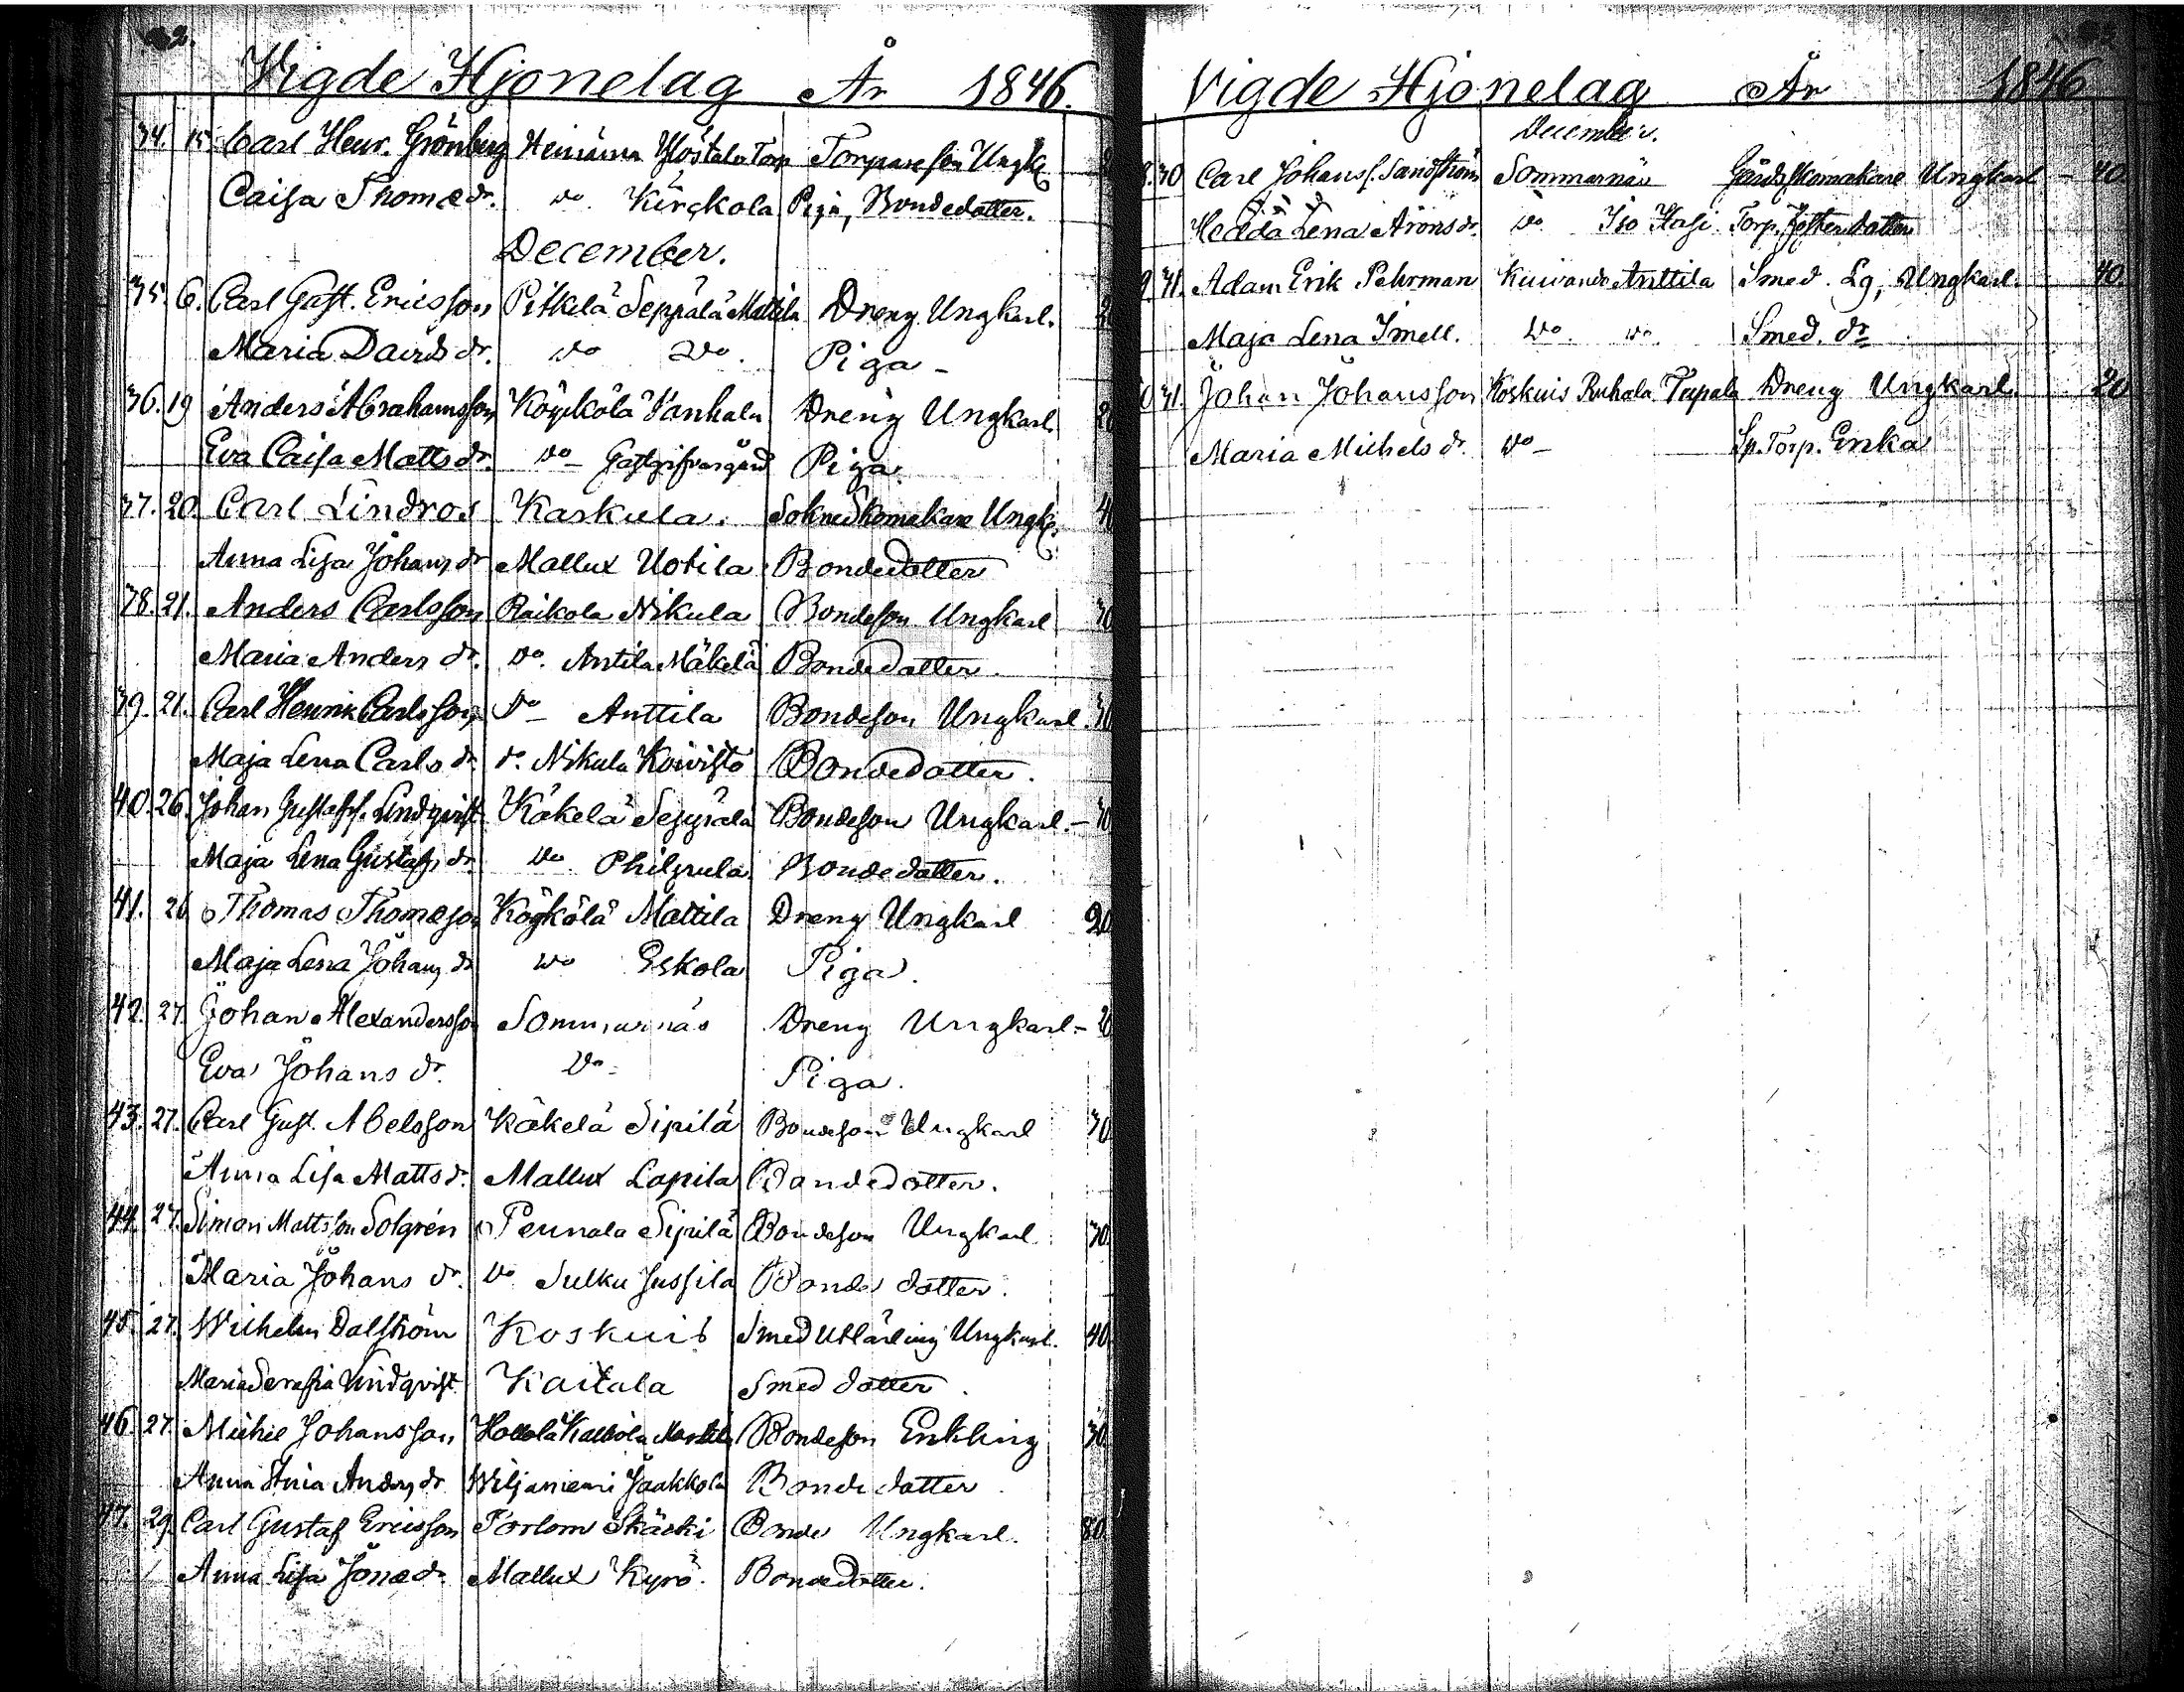 Vigde Hjonelag År 1846.
34. 15 Carl Henr. Grönberg Heinäma Ylöstalo Torp Torpareson Ungk.
Caisa Thomædr. do Kirckola Piga, Bondedotter.
December.
35. 6. Carl Gust. Ericsson Pitkelä Seppälä Mattila Dreng Ungkarl. 20
Maria Davids dr. do do. Piga -
36. 19 Anders Abrahamsson Köyckölä Vanhala Dreng Ungkarl. 20
Eva Caisa Matts dr. do - Gästgifvargård Piga.
37. 20. Carl Lindros Karkula. Sockneskomakare Ungk. 40
Anna Lisa Johans dr Mallux Uotila Bondedotter
38. 21. Anders Carlsson Raikola Nikula Bondeson Ungkarl 30
Maria Anders dr. do. Antila Mäkelä Bondedotter.
39. 21. Carl Henrik Carlsson do - Anttila Bondeson Ungkarl. 30
Maja Lena Carls dr. do. Nikula Koivisto Bondedotter.
40. 26. Johan Gustafss. Lindqvist Käkelä Seppälä Bondeson Ungkarl. - 30
Maja Lena Gustafs dr do Philpula. Bondedotter.
41. 26 Thomas Thomæson Köykölä Mattila Dreng Ungkarl 20
Maja Lena Johans dr do Eskola Piga.
42. 27. Johan Alexandersson Sommarnäs Dreng Ungkarl - 20
Eva Johans dr. do Piga.
43. 27. Carl Gust. Abelsson Käkelä Sipilä Bondeson Ungkarl 30
Anna Lisa Matts dr. Mallux Lapila Bondedotter.
44. 27. Simon Mattsson Solgrén Pennala Sipilä Bondeson Ungkarl 30.
Maria Johans dr. do Sulku Jussila Bonde dotter.
45. 27. Wilhelm Dalström Koskuis Smed Utlärling Ungkarl. 40
Maria Serafia Lindqvist Kaitala Smed dotter.
46. 27. Michel Johansson Hollola Kalliola Bondeson Enkling 30
Anna Stina Anders dr Wiljaniemi Jaakkola Bonde dotter.
47. 29. Carl Gustaf Ericsson Torlom Skäski Bonde Ungkarl. 80.
Anna Lisa Jonædr. Mallux Kyrö. Bondedotter.
Vigde Hjonelag År 1846
December.
8. 30 Carl Johanss. Sandström Sommarnäs Gårdsskomakare Ungkarl - 40.
Hedda Lena Arons dr. do. Iso Hasi Torp. dotter
9 31. Adam Erik Pehrman Kuivando Anttila Smed. Lg, Ungkarl. 40.
Maja Lena Smell. do. do. Smed. dr
0 31. Johan Johansson Koskuis Ruhala Tupala Dreng Ungkarl. 20
Maria Michels dr. do - Sp. Torp. Enka